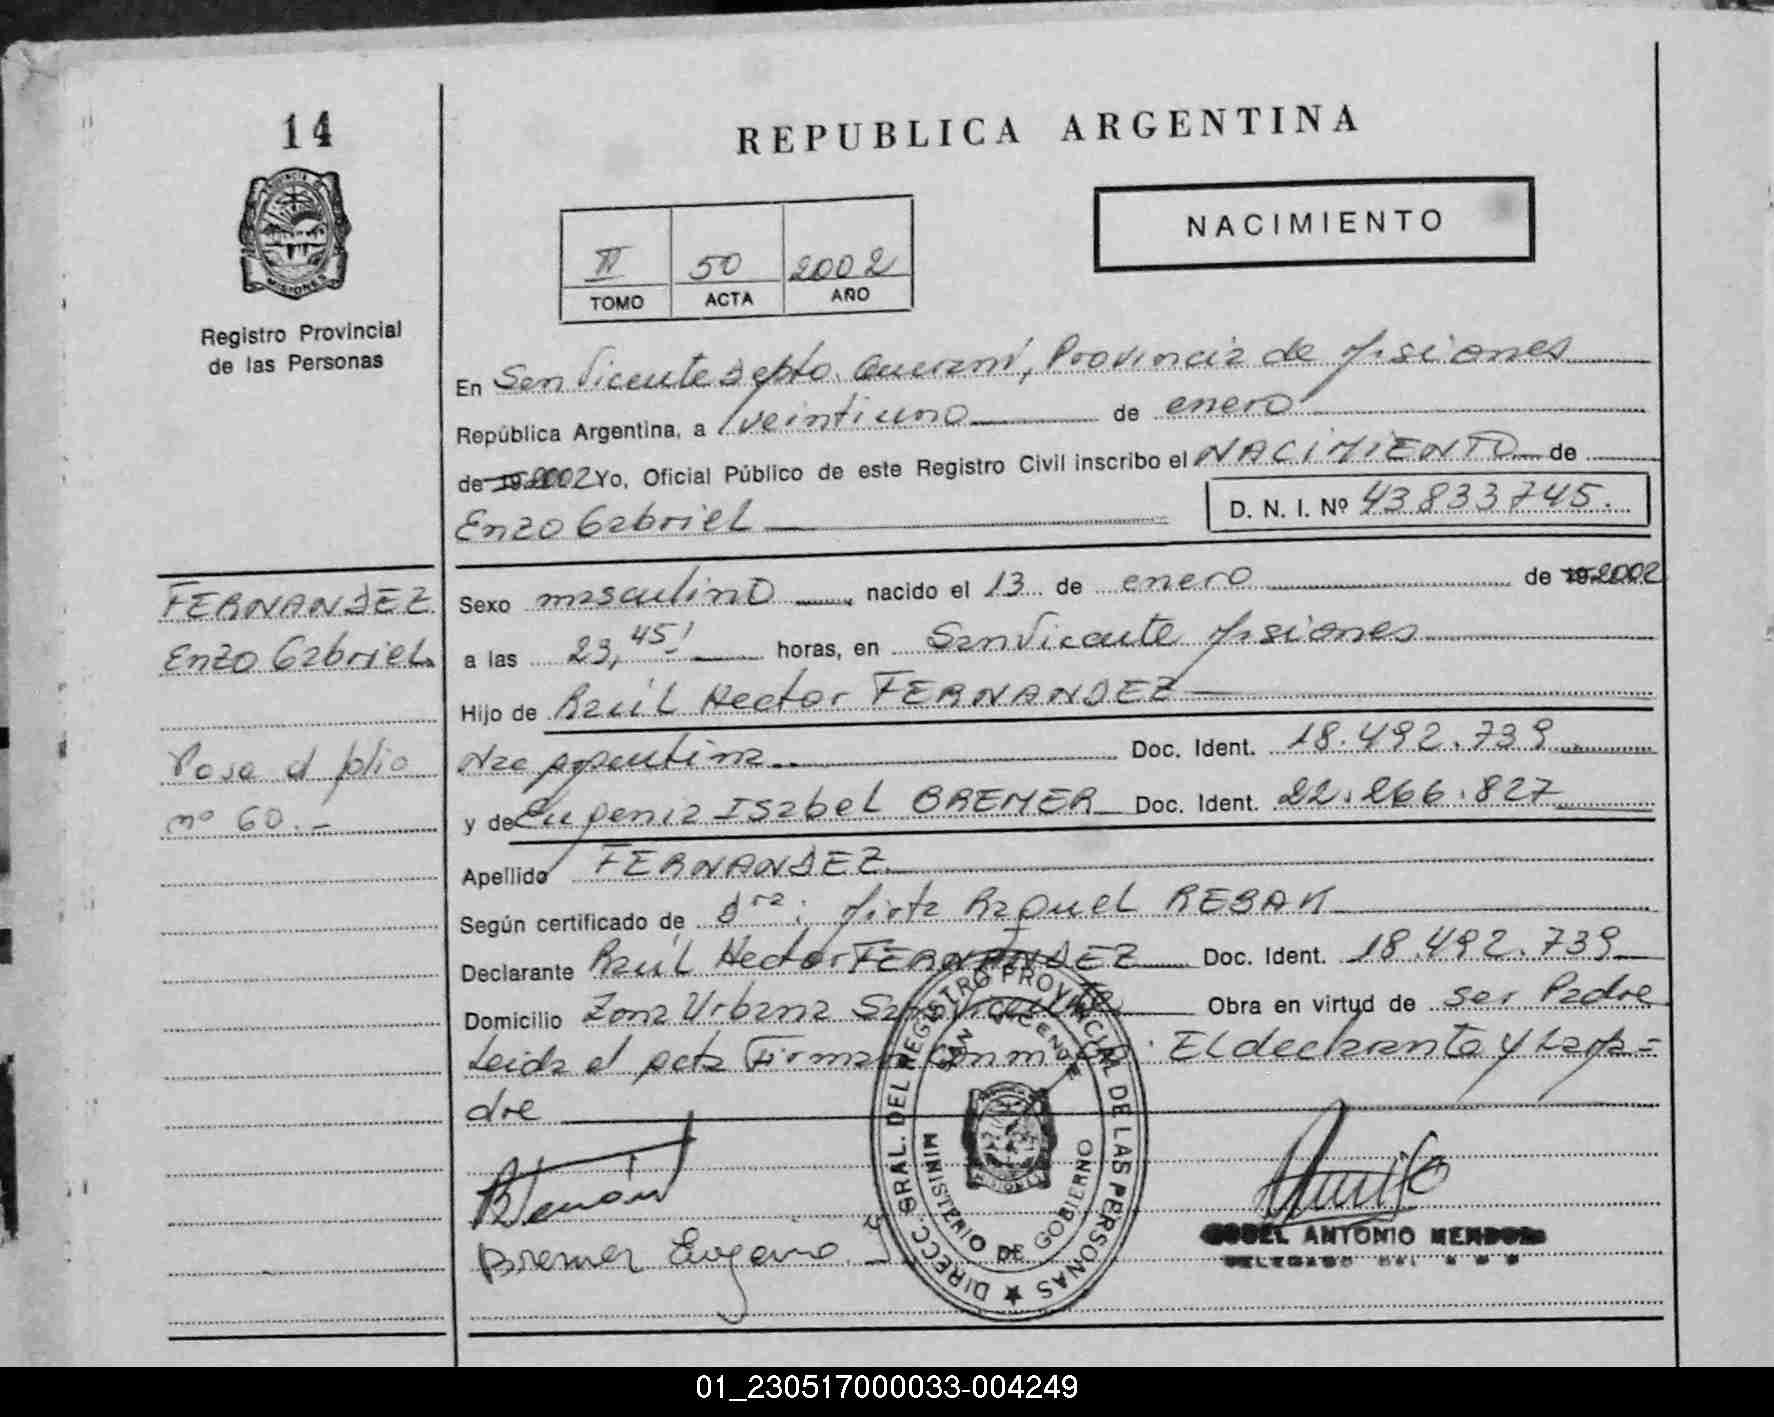 14
REPUBLICA ARGENTINA
NACIMIENTO
II 50 2002
TOMO ACTA AÑO
PROVINCIA DE
MISIONES
Registro Provincial
de las Personas
En San Vicente Depto. Guaraní, Provincia de Misiones
República Argentina, a veintiuno de enero
de 19 2002 Yo, Oficial Público de este Registro Civil inscribo el NACIMIENTO de
Enzo Gabriel D. N. I. Nº 43833745.
FERNANDEZ
Enzo Gabriel.
Pasa al folio
nº 60.-
Sexo masculino, nacido el 13 de enero de 19 2002
a las 23,45' horas, en San Vicente Misiones
Hijo de Raúl Hector FERNANDEZ
Nac argentina Doc. Ident. 18.492.739
y de Eugenia Isabel BREMER Doc. Ident. 22.266.827
Apellido FERNANDEZ
Según certificado de Dra: Mirta Raquel
Declarante Raúl Hector FERNANDEZ Doc. Ident. 18.492.739
Domicilio Zona Urbana San Vicente Obra en virtud de ser Padre
Leida el acta Firman conmigo: El declarante y La Ma=
dre
DIRECC. GRAL. DEL REGISTRO PROVINCIAL DE LAS PERSONAS
SAN VICENTE
MINISTERIO DE GOBIERNO
MISIONES
Bremer Eugenia I
ANTONIO
DELEGADO
01_230517000033-004249